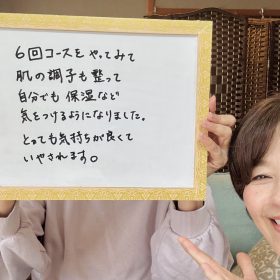 6回コースをやってみて
肌の調子も整って
自分でも保湿など
気をつけるようになりました。
とっても気持ちが良くて
いやされます。